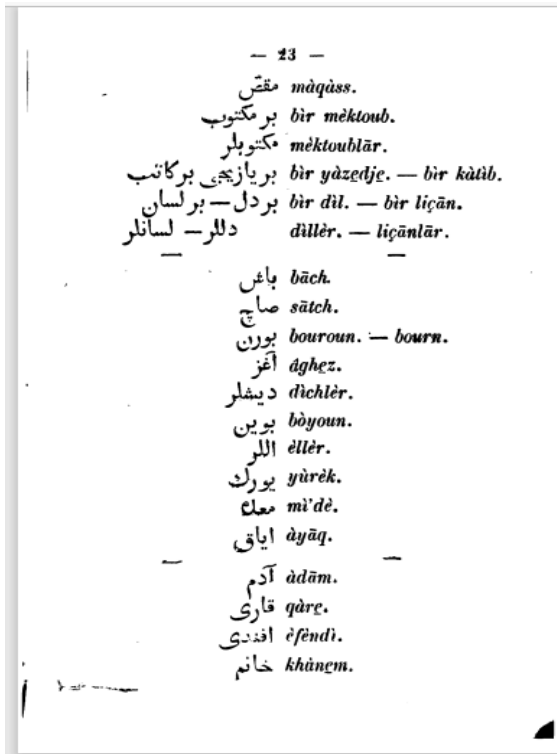 — 23 —
مقصّ màqàss.
بر مكتوب bìr mèktoub.
مكتوبلر mèktoublār.
بر يازيجى بر كاتب bìr yàze̱dje̱. — bìr kàtìb.
بر دل — بر لسان bìr dìl. — bìr liçān.
دللر — لسانلر dìllèr. — liçānlār.
— —
باش bāch.
صاچ sātch.
بورن bouroun. — bourn.
آغز âghe̱z.
ديشلر dìchlèr.
بوين bòyoun.
اللر èllèr.
يورك yùrèk.
معده mì'dè.
اياق àyāq.
— —
آدم àdām.
قارى qàre̱.
افندى èfèndì.
خانم khàne̱m.